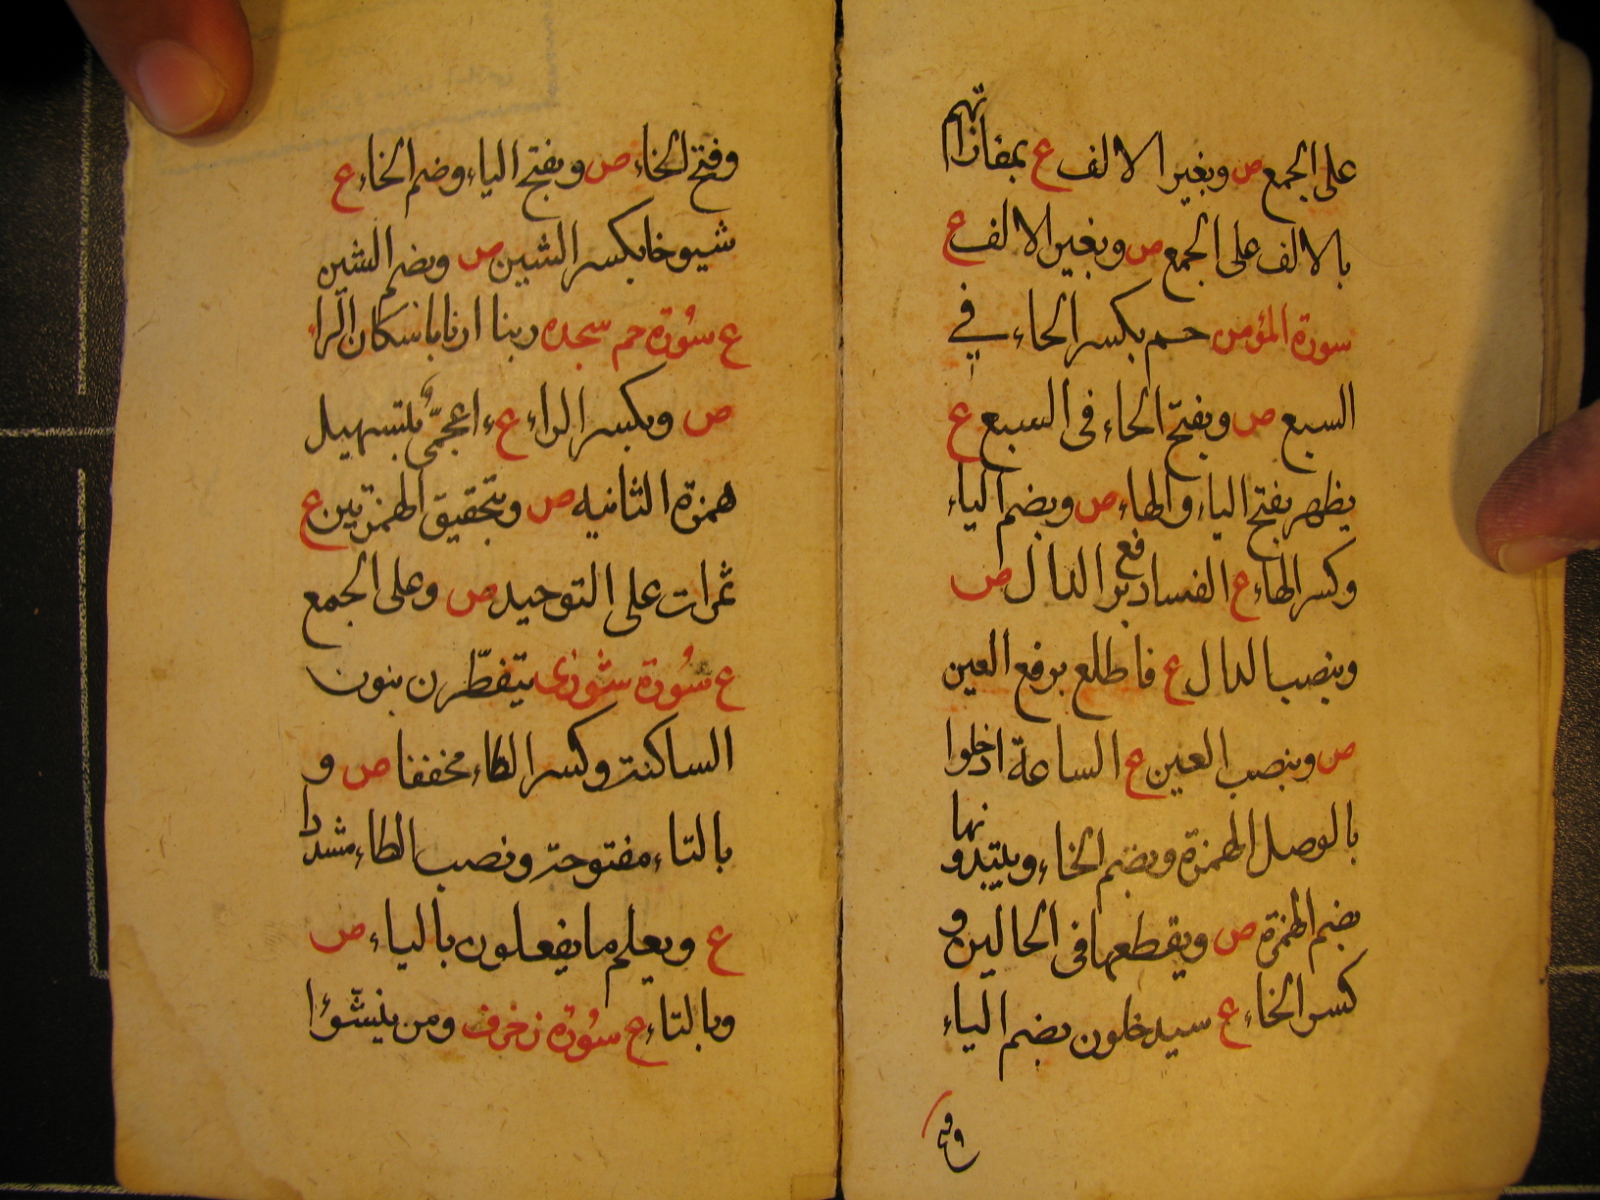 على الجمع ص وبغير الالف ع بمفازاتهم
بالالف على الجمع ص وبغير الالف ع
سورة المؤمن حم بكسر الحاء في
السبع ص وبفتح الحاء في السبع ع
يظهر بفتح الياء والهاء ص وبضم الياء
وكسر الهاء ع الفساد برفع الدال ص
وبنصب الدال ع فاطلع برفع العين
ص وبنصب العين ع الساعة ادخلوا
بالوصل الهمزة وبضم الخاء ويبتدونها
بضم الهمزة ص وبقطعها في الحالين و
كسر الخاء ع سيدخلون بضم الياء
وفتح
وفتح الخاء ص وبفتح الياء وضم الخاء ع
شيوخا بكسر الشين ص وبضم الشين
ع سورة حم سجده ربنا ارنا باسكان الراء
ص وبكسر الراء ع ءاعجمىّ بتسهيل
همزة الثانيه ص وبتحقيق الهمزتين ع
ثمرات على التوحيد ص وعلى الجمع
ع سورة شورى يتفطّرن بنون
الساكنة وكسر الطاء مخففا ص و
بالتاء مفتوحة ونصب الطاء مشددا
ع ويعلم ما يفعلون بالياء ص
وبالتاء ع سورة زخرف ومن ينشّؤا